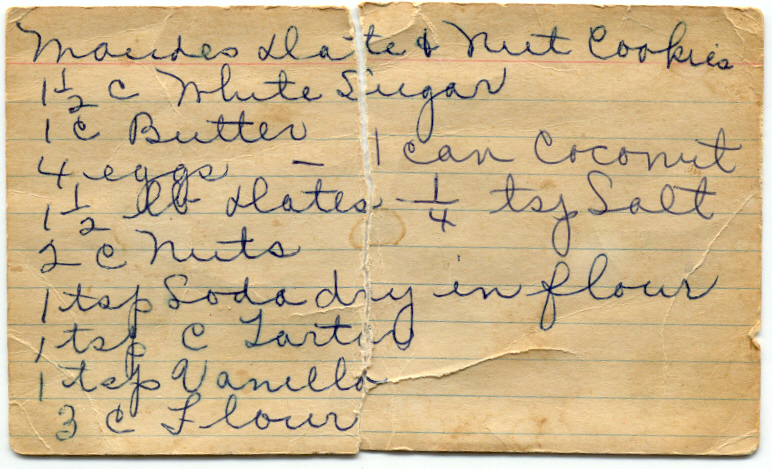 Maudes Date & Nut Cookies
1 1/2 c White Sugar
1 c Butter
4 eggs - 1 can Coconut
1 1/2 lb Dates - 1/4 tsp Salt
2 c Nuts
1 tsp Soda dry in flour
1 tsp C Tarter
1 tsp Vanilla
3 c Flour